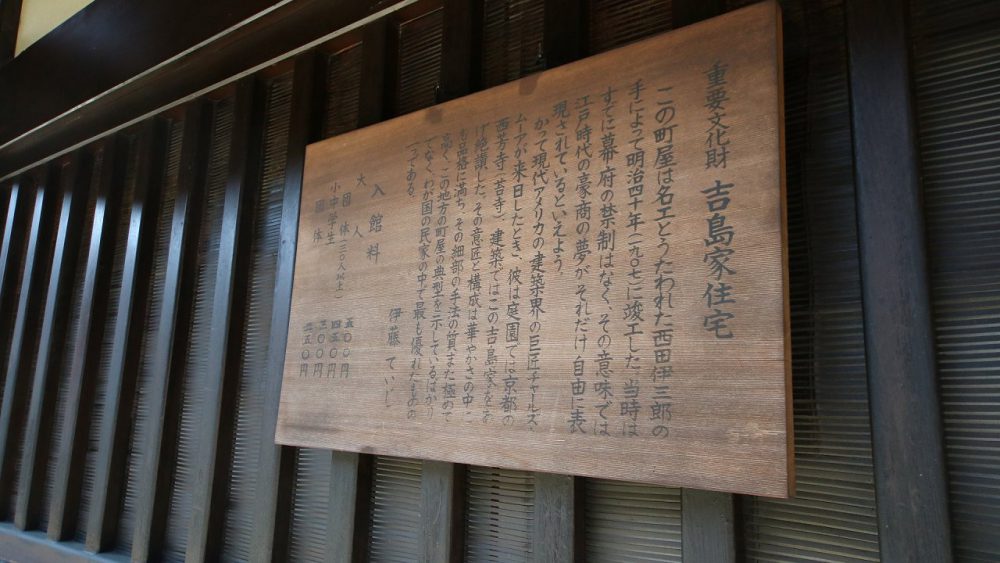 重要文化財 吉島家住宅
この町屋は名工とうたわれた西田伊三郎の
手によって明治四十年(一九〇七)に竣工した。当時は
すでに幕府の禁制はなく、その意味では
江戸時代の豪商の夢が、それだけ自由に表
現されているといえよう。
かって現代アメリカの建築界の巨匠チャールズ
ムーアが来日したとき、彼は庭園では京都の
西芳寺(苔寺)、建築ではこの吉島家をを
げ絶讃した。その意匠と構成は華やかさの中に
も品格に満ち、その細部の手法の質また極めて
高く、この地方の町屋の典型を示しているばかり
でなく、わが国の民家の中で最も優れたものの
一つである。
伊藤ていじ
入館料
大人 五〇〇円
団体(三〇人以上) 四五〇円
小中学生 三〇〇円
団体 二五〇円